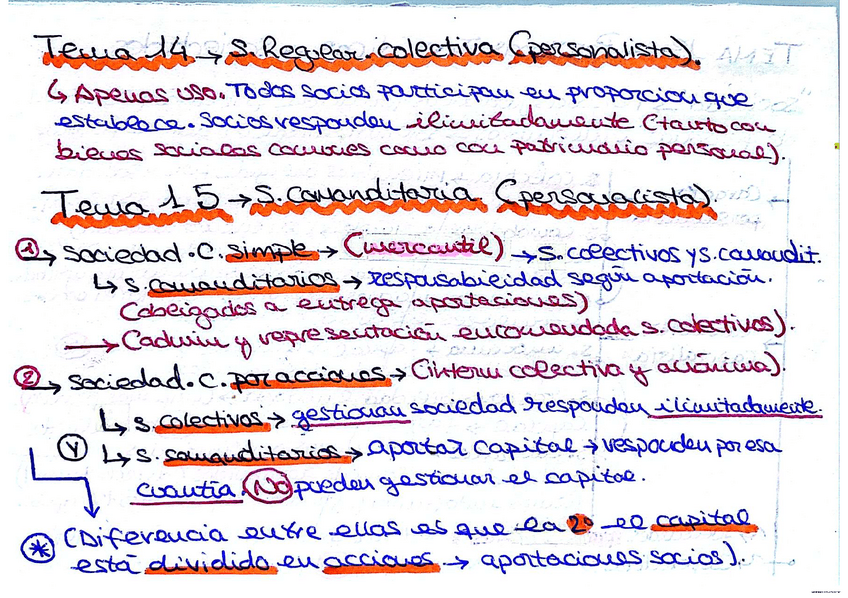 Tema 14 → S. Regular colectiva (personalista).
↳ Apenas uso. Todos socios participan en proporcion que
establece. Socios responden ilimitadamente (tanto con
bienes sociales comunes como con patrimonio personal).
Tema 15 → S. comanditaria (personalista).
① → Sociedad. C. simple → (mercantil) → s. colectivos y s. comandit.
↳ s. comanditarios → responsabilidad según aportación.
(obligados a entrega aportaciones)
→ (admin y representación encomendada s. colectivos).
② → Sociedad. C. por acciones → (interm colectiva y anónima).
↳ s. colectivos → gestionan sociedad responden ilimitadamente.
Y ↳ s. comanditarios → aportar capital → responden por esa
cuantía. No pueden gestionar el capital.
* (Diferencia entre ellas es que la 2º el capital
está dividido en acciones → aportaciones socios).